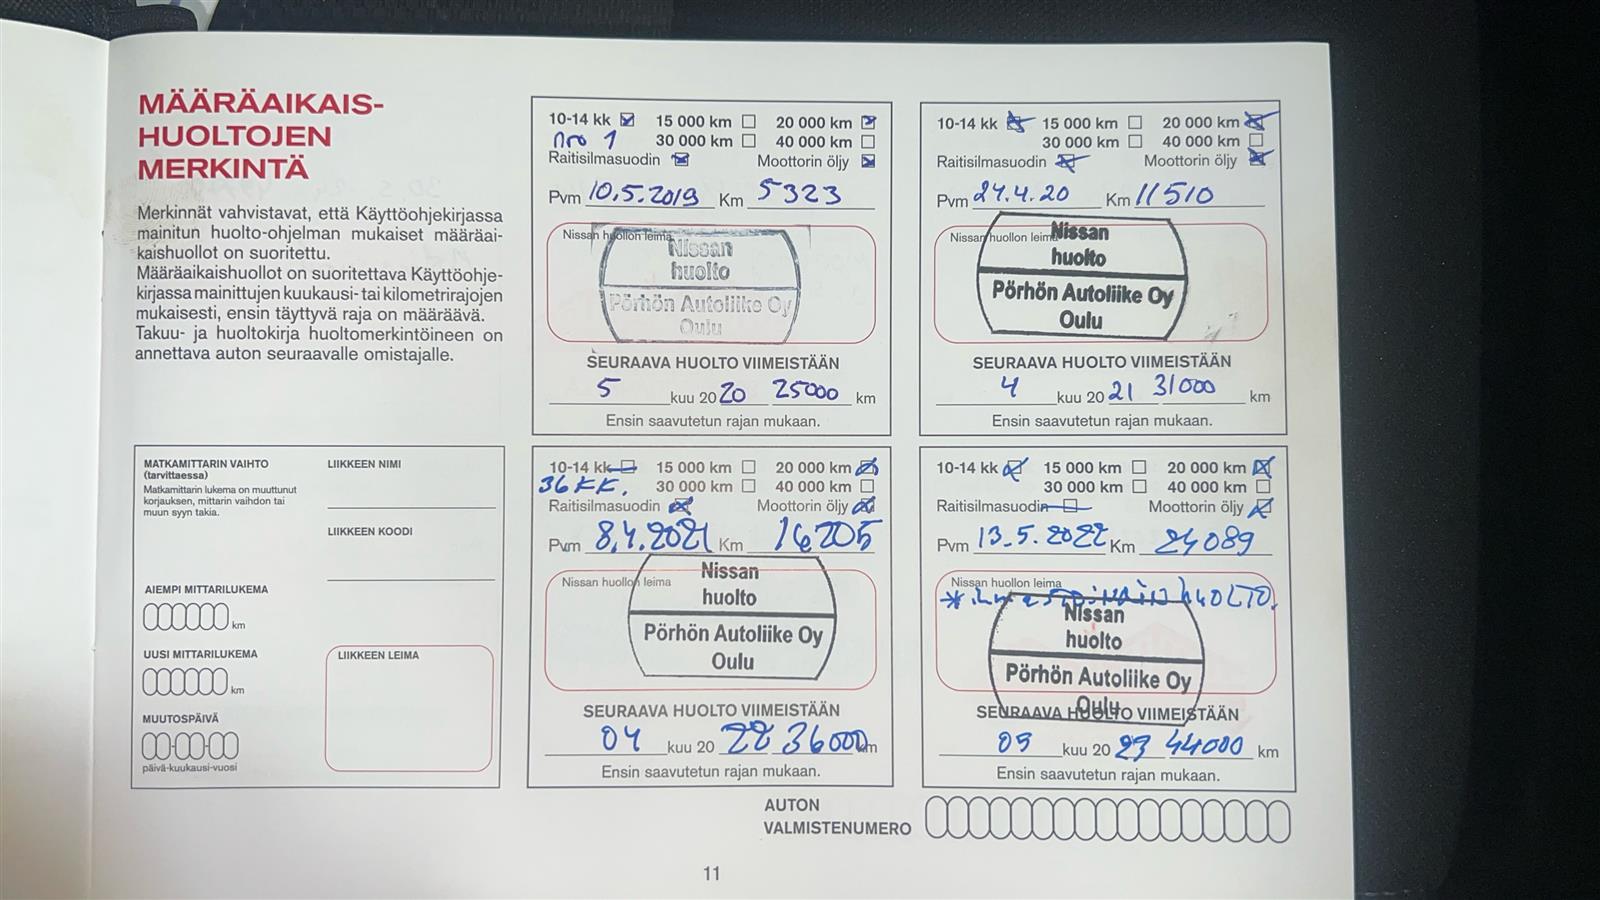 MÄÄRÄAIKAIS-
HUOLTOJEN
MERKINTÄ
Merkinnät vahvistavat, että Käyttöohjekirjassa
mainitun huolto-ohjelman mukaiset määräai-
kaishuollot on suoritettu.
Määräaikaishuollot on suoritettava Käyttöohje-
kirjassa mainittujen kuukausi- tai kilometrirajojen
mukaisesti, ensin täyttyvä raja on määräävä.
Takuu- ja huoltokirja huoltomerkintöineen on
annettava auton seuraavalle omistajalle.
MATKAMITTARIN VAIHTO
(tarvittaessa)
Matkamittarin lukema on muuttunut
korjauksen, mittarin vaihdon tai
muun syyn takia.
AIEMPI MITTARILUKEMA
km
UUSI MITTARILUKEMA
km
MUUTOSPÄIVÄ
päivä-kuukausi-vuosi
LIIKKEEN NIMI
LIIKKEEN KOODI
LIIKKEEN LEIMA
10-14 kk 15 000 km 20 000 km
nro 1 30 000 km 40 000 km
Raitisilmasuodin Moottorin öljy
Pvm 10.5.2019 Km 5323
Nissan huollon leima
Nissan
huolto
Pörhön Autoliike Oy
Oulu
SEURAAVA HUOLTO VIIMEISTÄÄN
5 kuu 2020 25000 km
Ensin saavutetun rajan mukaan.
10-14 kk 15 000 km 20 000 km
30 000 km 40 000 km
Raitisilmasuodin Moottorin öljy
Pvm 24.4.20 Km 11510
Nissan huollon leima
Nissan
huolto
Pörhön Autoliike Oy
Oulu
SEURAAVA HUOLTO VIIMEISTÄÄN
4 kuu 2021 31000 km
Ensin saavutetun rajan mukaan.
10-14 kk 15 000 km 20 000 km
36 KK. 30 000 km 40 000 km
Raitisilmasuodin Moottorin öljy
Pvm 8.4.2021 Km 16205
Nissan huollon leima
Nissan
huolto
Pörhön Autoliike Oy
Oulu
SEURAAVA HUOLTO VIIMEISTÄÄN
04 kuu 2022 36000 km
Ensin saavutetun rajan mukaan.
10-14 kk 15 000 km 20 000 km
30 000 km 40 000 km
Raitisilmasuodin Moottorin öljy
Pvm 13.5.2022 Km 24089
Nissan huollon leima
* ilmastoinnin huolto.
Nissan
huolto
Pörhön Autoliike Oy
Oulu
SEURAAVA HUOLTO VIIMEISTÄÄN
05 kuu 2023 44000 km
Ensin saavutetun rajan mukaan.
AUTON
VALMISTENUMERO
11